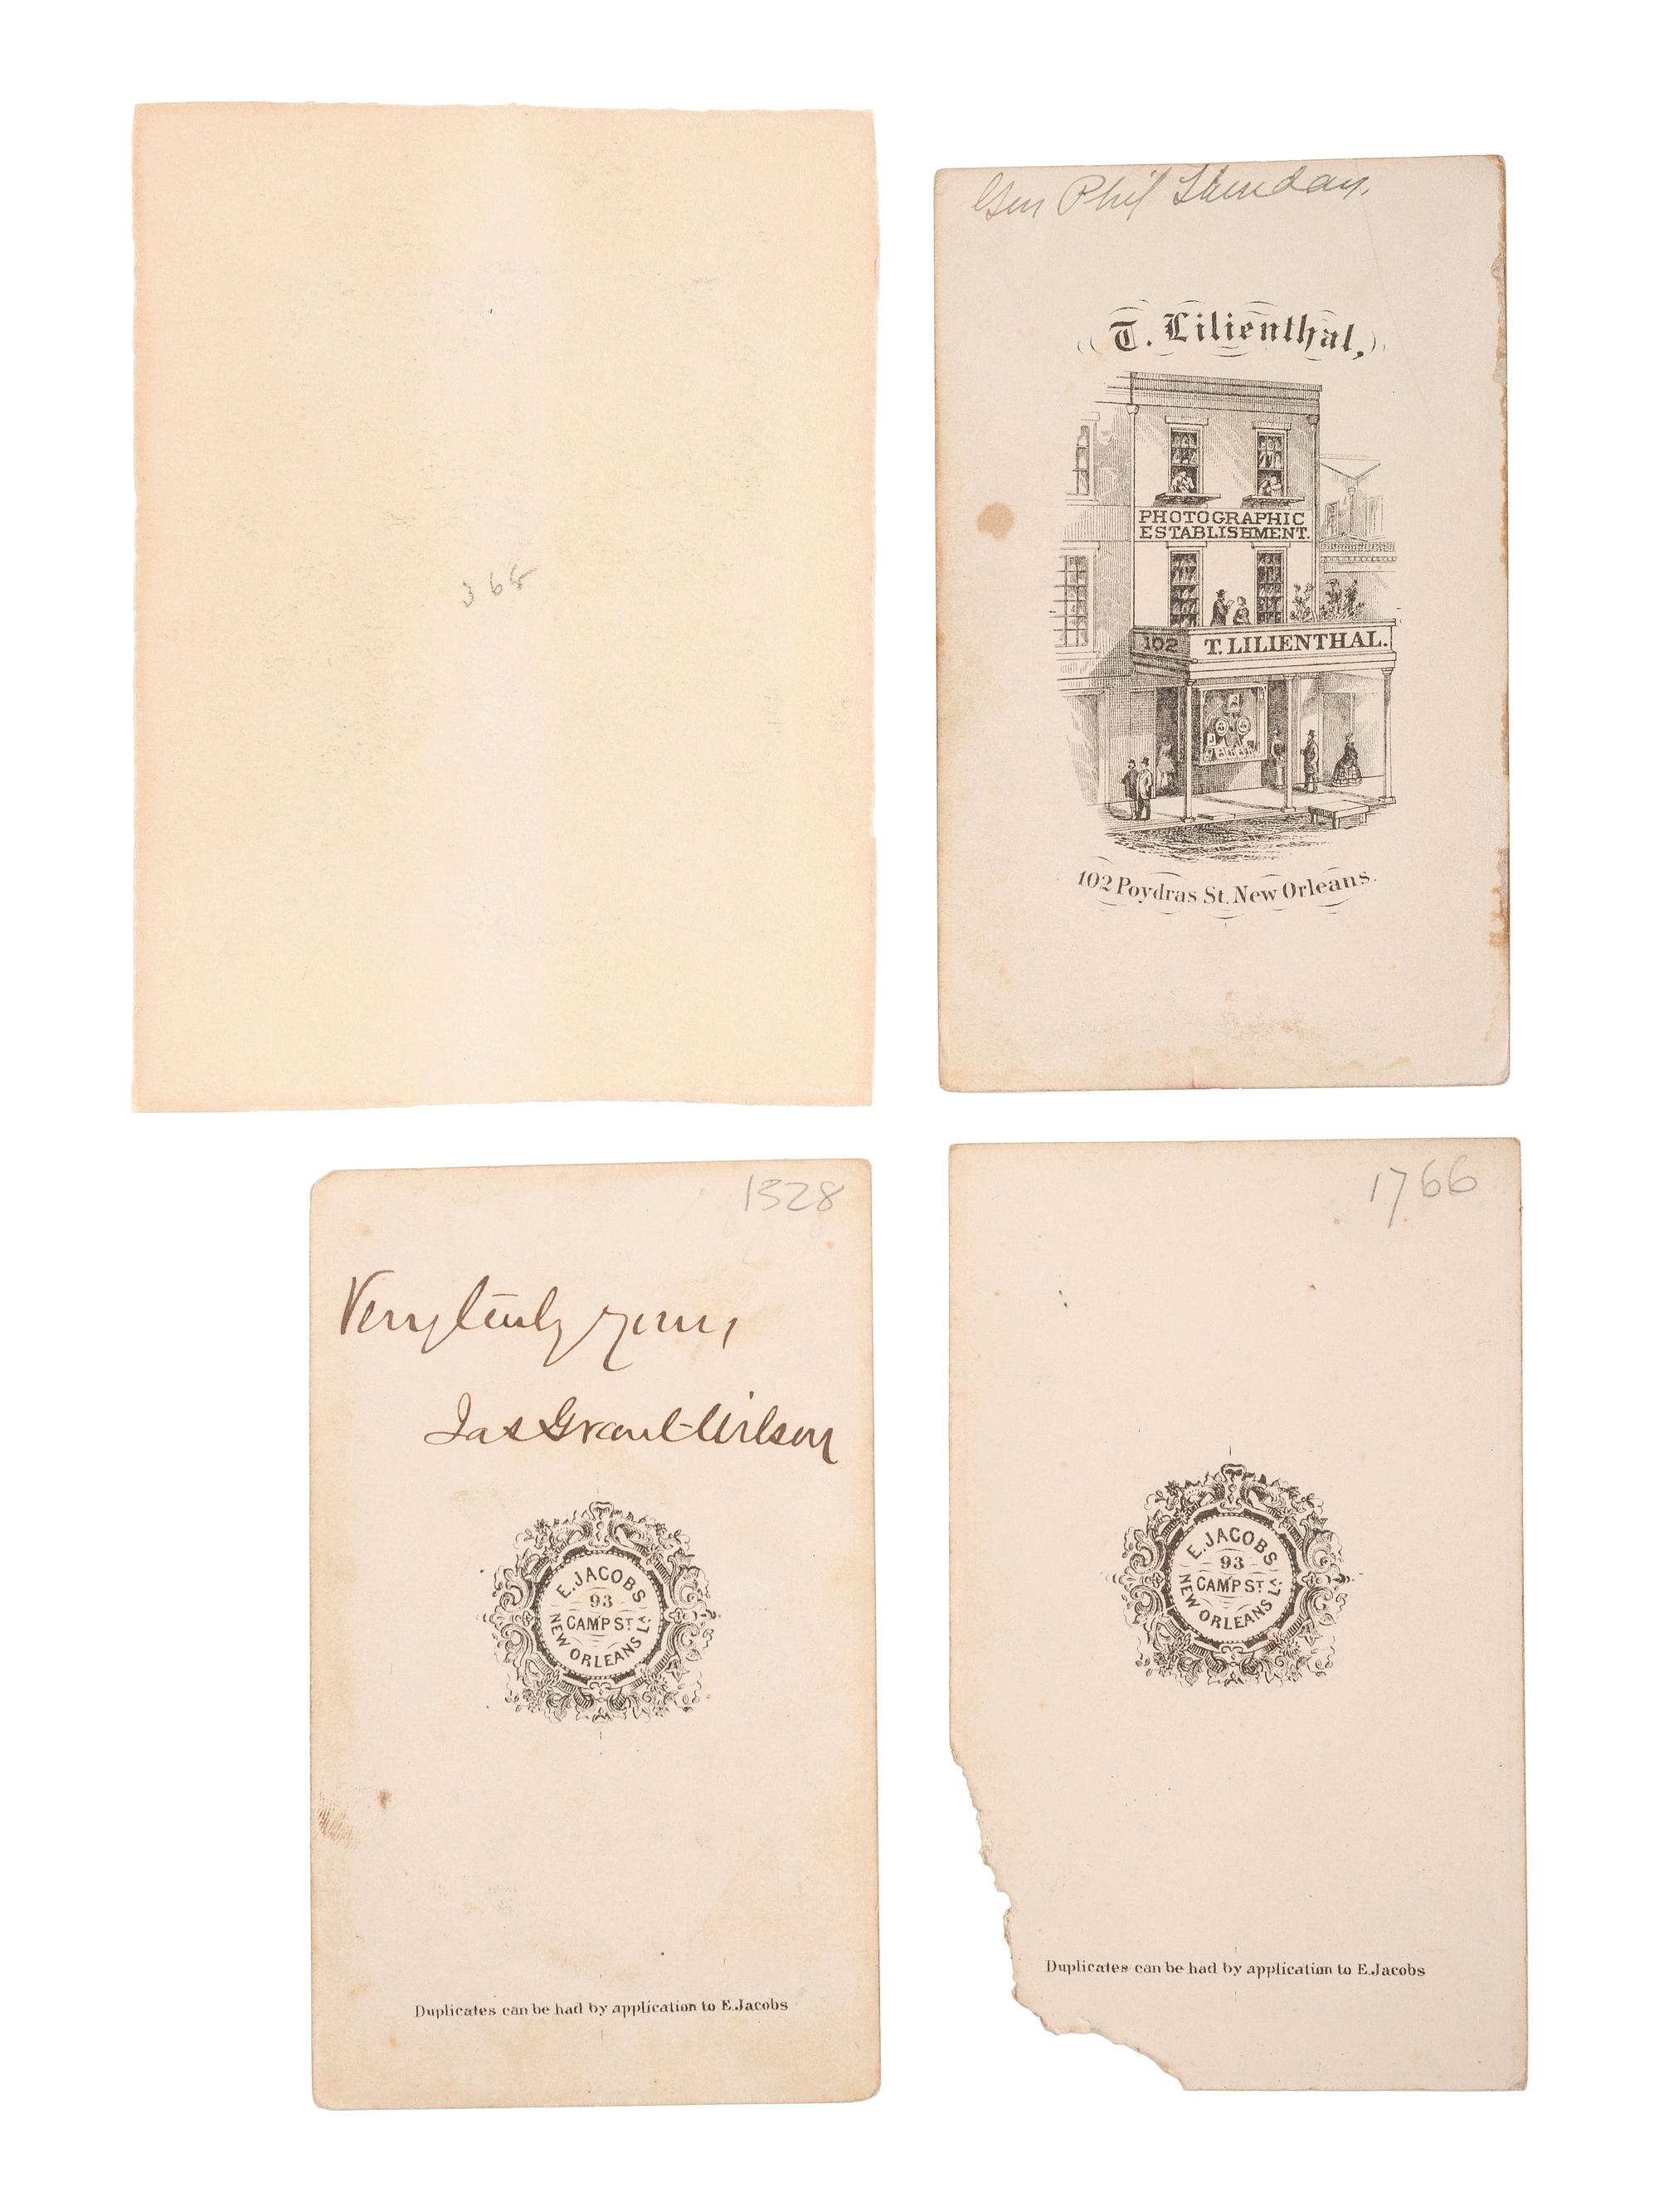 365
Gen Phil Sheridan.
T. Lilienthal,
PHOTOGRAPHIC
ESTABLISHMENT.
102 T. LILIENTHAL.
102 Poydras St. New Orleans.
1328
Very truly yours,
Jas Grant Wilson
E. JACOBS
93
CAMP ST
NEW ORLEANS LA.
Duplicates can be had by application to E. Jacobs
1766
E. JACOBS
93
CAMP ST
NEW ORLEANS LA.
Duplicates can be had by application to E. Jacobs